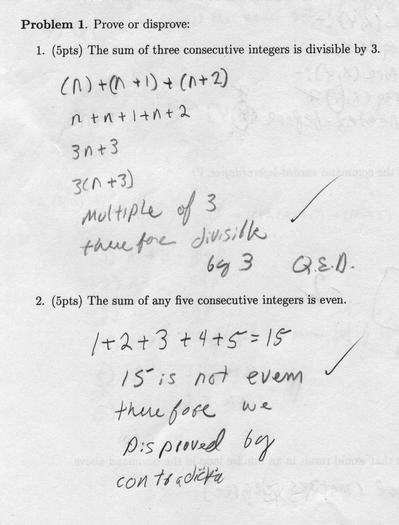 Problem 1. Prove or disprove:
1. (5pts) The sum of three consecutive integers is divisible by 3.
(n) + (n + 1) + (n+2)
n + n + 1 + n + 2
3n + 3
3(n + 3)
Multiple of 3
therefore divisible
by 3 Q.E.D.
2. (5pts) The sum of any five consecutive integers is even.
1 + 2 + 3 + 4 + 5 = 15
15 is not evem
therefore we
Disproved by